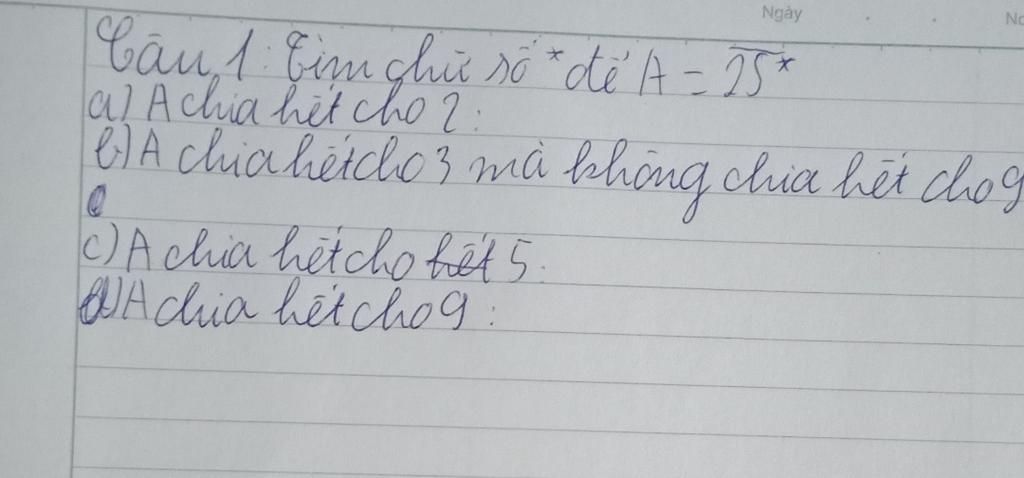 Ngày
No
Câu 1: Tìm chữ số * để A = 25*
a) A chia hết cho 2:
b) A chia hết cho 3 mà không chia hết cho 9
c) A chia hết cho hết 5.
d) A chia hết cho 9: